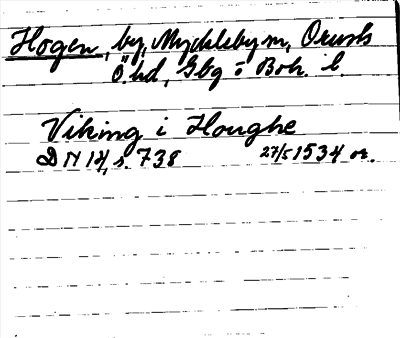 Hogen, by, Myckleby sn, Orusts
Ö. hd, Gbg o Boh. l.
Viking i Houghe
DN 14, s. 738 27/5 1534 or.